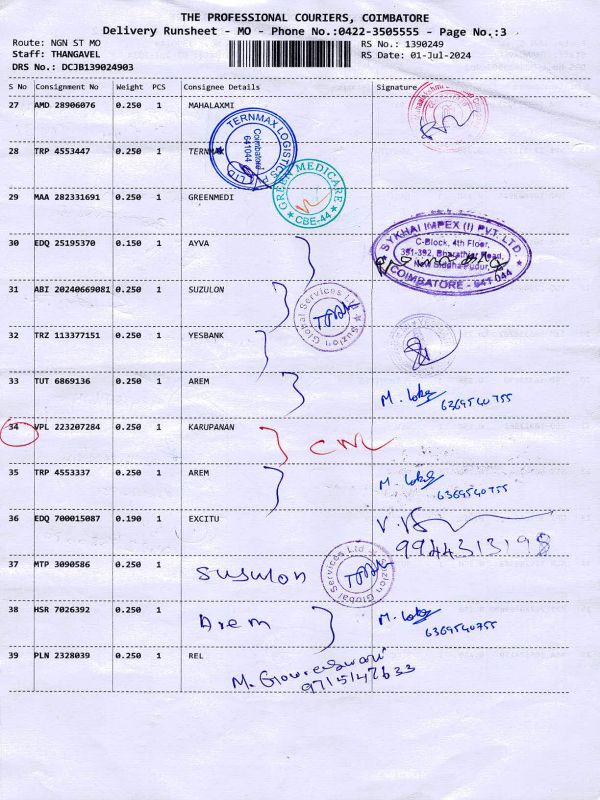 THE PROFESSIONAL COURIERS, COIMBATORE
Delivery Runsheet - MO - Phone No.:0422-3505555 - Page No.:3
Route: NGN ST MO
RS No.: 1390249
Staff: THANGAVEL
RS Date: 01-Jul-2024
DRS No.: DCJB139024903
S No Consignment No Weight PCS Consignee Details Signature
27 AMD 28906076 0.250 1 MAHALAXMI
TERNMAX LOGISTICS
Coimbatore
641044
LTD
28 TRP 4553447 0.250 1 TERNMAX
29 MAA 282331691 0.250 1 GREENMEDI
GREEN MEDICARE
★ CBE-44 ★
30 EDQ 25195370 0.150 1 AYVA
SYKHAI IMPEX (I) PVT. LTD.
C-Block, 4th Floor,
391-392, Bharathiar Road,
New Siddha Pudur,
COIMBATORE - 641 044
31 ABI 20240669081 0.250 1 SUZULON
Suzlon Global Services Ltd
32 TRZ 113377151 0.250 1 YESBANK
33 TUT 6869136 0.250 1 AREM
M. Lokes
6369540755
34 VPL 223207284 0.250 1 KARUPANAN
35 TRP 4553337 0.250 1 AREM
M. Lokes
6369540755
36 EDQ 700015087 0.190 1 EXCITU
9944313198
37 MTP 3090586 0.250 1 Susulon
Suzlon Global Services Ltd
38 HSR 7026392 0.250 1 Arem
M. Lokes
6369540755
39 PLN 2328039 0.250 1 REL
M. Gowreeswari
9715147633